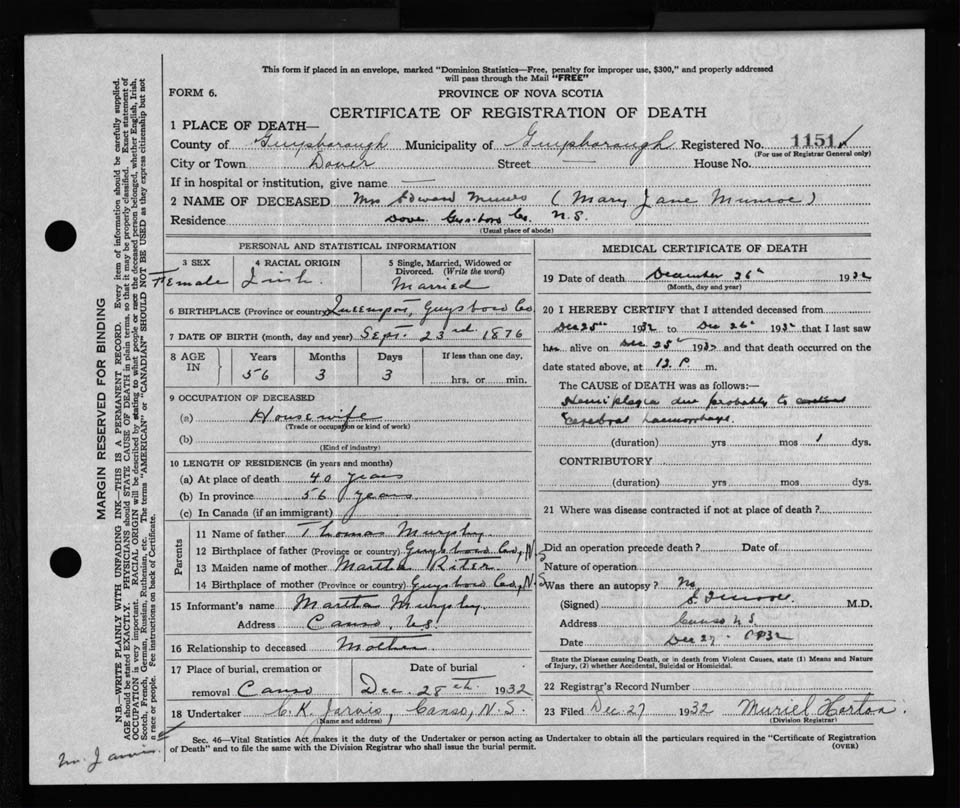 This form if placed in an envelope, marked "Dominion Statistics—Free, penalty for improper use, $300," and properly addressed
will pass through the Mail "FREE"
FORM 6.
PROVINCE OF NOVA SCOTIA
CERTIFICATE OF REGISTRATION OF DEATH
1 PLACE OF DEATH—
County of Guysborough Municipality of Guysborough Registered No. 1151
(For use of Registrar General only)
City or Town Dover Street — House No.
If in hospital or institution, give name —
2 NAME OF DECEASED Mrs Edward Munroe (Mary Jane Munroe)
Residence Dover Guysboro Co. N.S.
(Usual place of abode)
PERSONAL AND STATISTICAL INFORMATION
3 SEX
Female
4 RACIAL ORIGIN
Irish
5 Single, Married, Widowed or
Divorced. (Write the word)
Married
6 BIRTHPLACE (Province or country) Queensport, Guysboro Co
7 DATE OF BIRTH (month, day and year) Sept. 23rd 1876
8 AGE IN
Years Months Days If less than one day,
56 3 3 hrs. or min.
9 OCCUPATION OF DECEASED
(a) Housewife
(Trade or occupation or kind of work)
(b)
(Kind of industry)
10 LENGTH OF RESIDENCE (in years and months)
(a) At place of death 40 years
(b) In province 56 years
(c) In Canada (if an immigrant)
Parents
11 Name of father Thomas Murphy
12 Birthplace of father (Province or country) Guysboro Co, N.S
13 Maiden name of mother Martha
14 Birthplace of mother (Province or country) Guysboro Co, N.S
15 Informant's name Martha Murphy
Address Canso, N.S.
16 Relationship to deceased Mother
17 Place of burial, cremation or
removal Canso
Date of burial
Dec. 28th. 1932
18 Undertaker C. K. Jarvis, Canso, N.S.
(Name and address)
MEDICAL CERTIFICATE OF DEATH
19 Date of death December 26th 1932
(Month, day and year)
20 I HEREBY CERTIFY that I attended deceased from
Dec 25th 1932 to Dec 26th 1932 that I last saw
her alive on Dec 25th 1932 and that death occurred on the
date stated above, at 12 P. m.
The CAUSE of DEATH was as follows:—
Hemiplegia due probably to
Cerebral haemorrhage.
(duration) yrs mos 1 dys.
CONTRIBUTORY
(duration) yrs mos dys.
21 Where was disease contracted if not at place of death?
Did an operation precede death? Date of
Nature of operation
Was there an autopsy? No
(Signed) M.D.
Address Canso N.S.
Date Dec 27 1932
State the Disease causing Death, or in death from Violent Causes, state (1) Means and Nature
of Injury, (2) whether Accidental, Suicidal or Homicidal.
22 Registrar's Record Number
23 Filed Dec. 27 1932 Muriel Horton.
(Division Registrar)
Sec. 46—Vital Statistics Act makes it the duty of the Undertaker or person acting as Undertaker to obtain all the particulars required in the "Certificate of Registration
of Death" and to file the same with the Division Registrar who shall issue the burial permit.
(OVER)
MARGIN RESERVED FOR BINDING
N.B.—WRITE PLAINLY WITH UNFADING INK—THIS IS A PERMANENT RECORD. Every item of information should be carefully supplied.
AGE should be stated EXACTLY. PHYSICIANS should STATE CAUSE OF DEATH in plain terms, so that it may be properly classified. Exact statement of
OCCUPATION is very important. RACIAL ORIGIN will be described by stating to what people or race the deceased person belonged, whether English, Irish,
Scotch, French, German, Russian, Ruthenian, etc. The terms "AMERICAN" or "CANADIAN" SHOULD NOT BE USED as they express citizenship but not
a race or people. See instructions on back of Certificate.
m. Jarvis